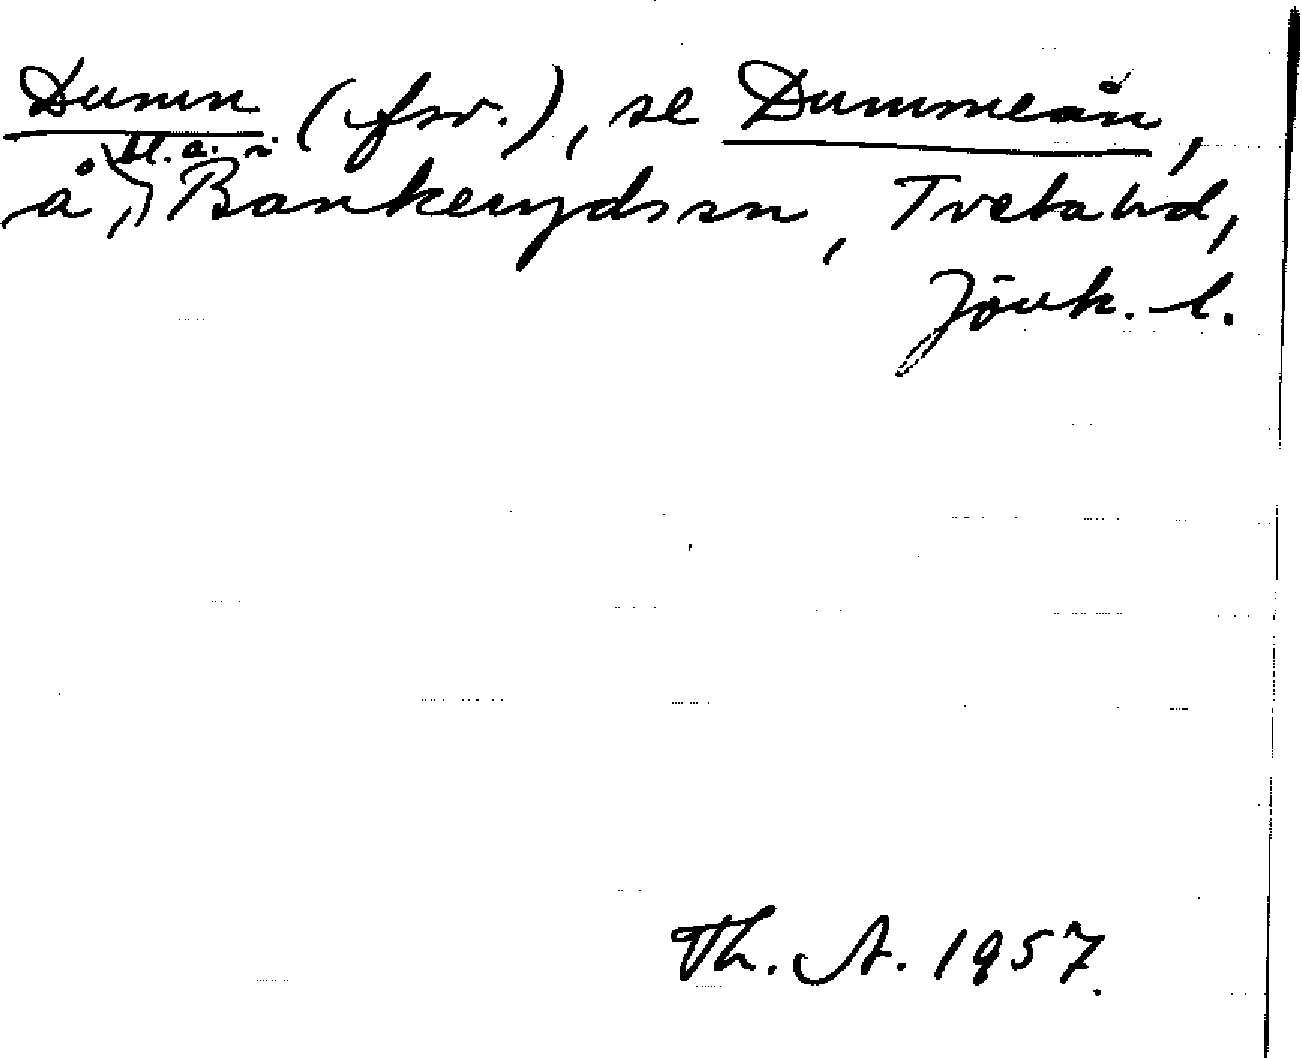 Dumn (fsv.), se Dummeån,
å bl. a. i Bankeryds sn, Tveta hd,
Jönk. l.
Th. A. 1957.